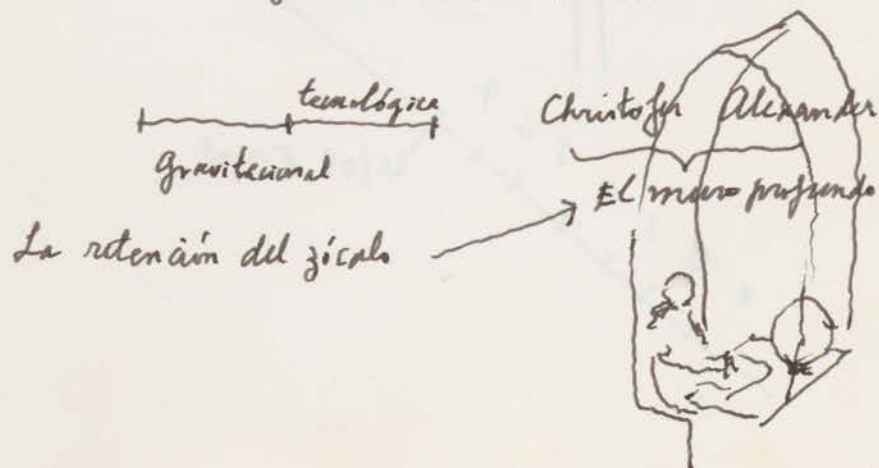 tecnológica
gravitacional
Christofer Alexander
El muro profundo
La retención del zócalo